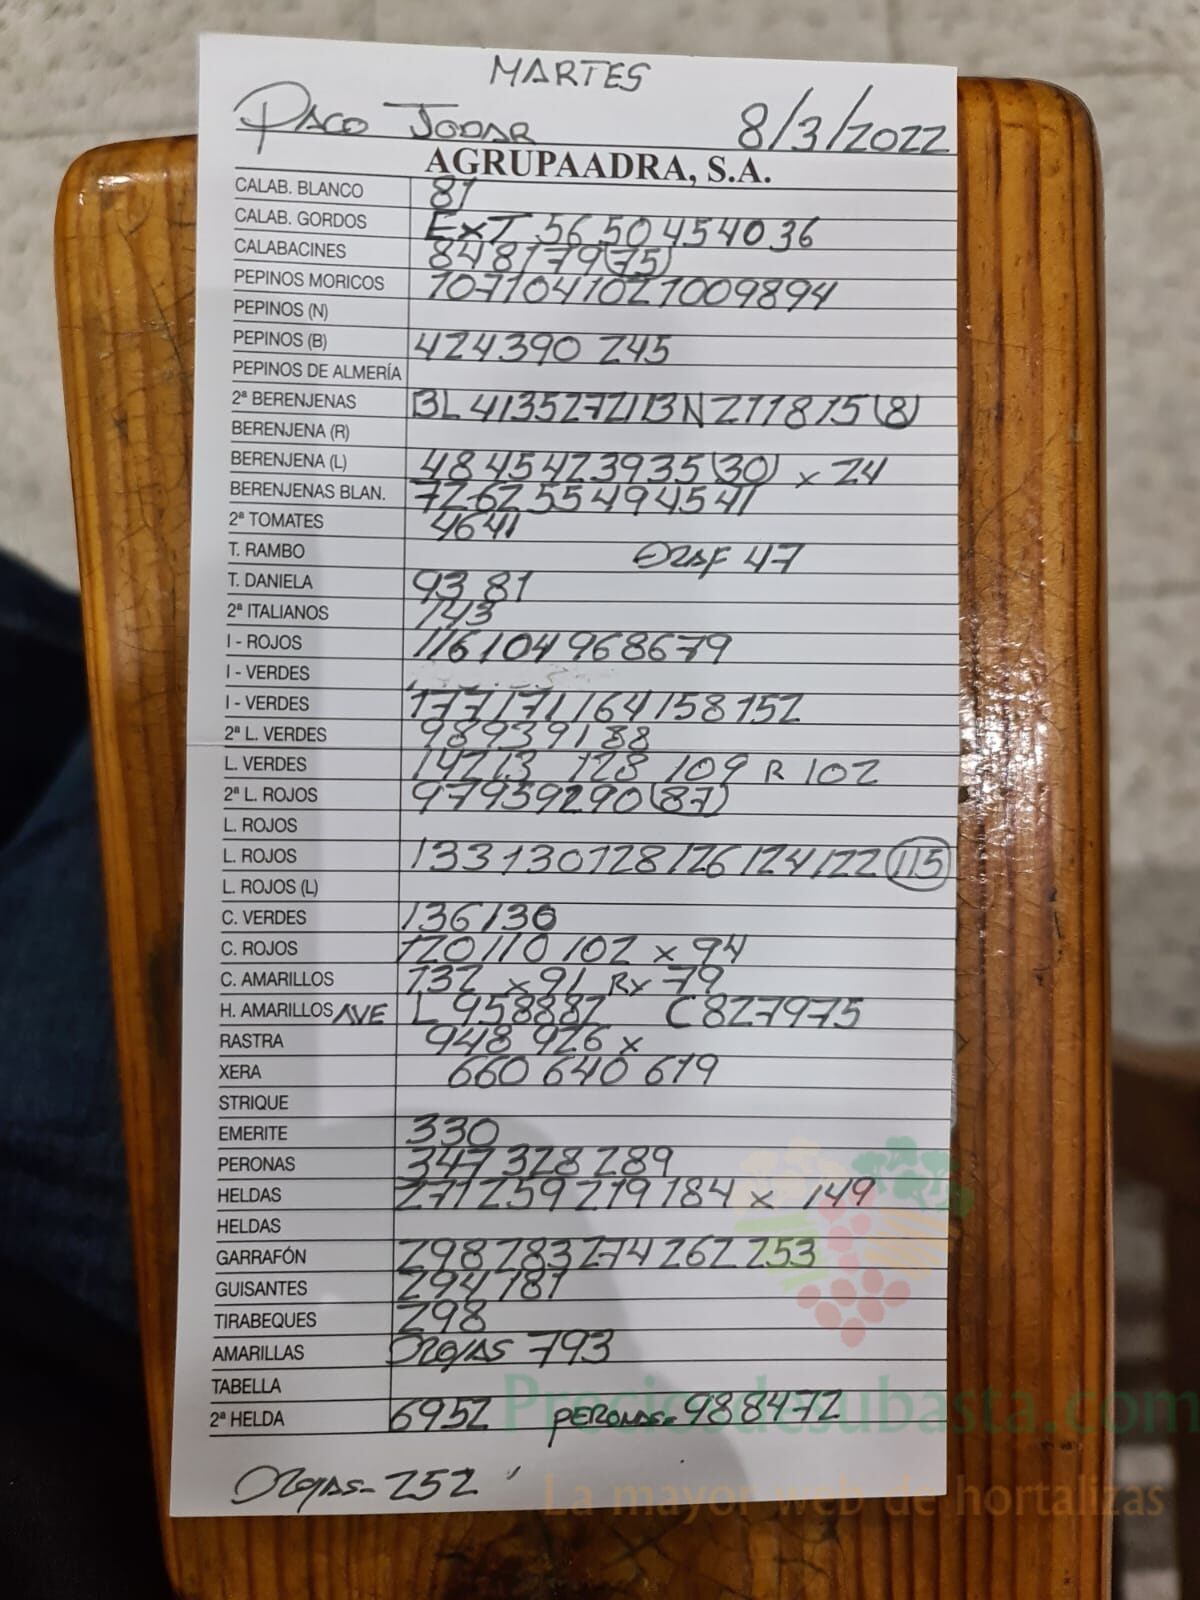 MARTES
PACO JODAR 8/3/2022
AGRUPAADRA, S.A.
CALAB. BLANCO 81
CALAB. GORDOS EXT 56 50 45 40 36
CALABACINES 84 81 79 (75)
PEPINOS MORICOS 107 104 102 100 98 94
PEPINOS (N)
PEPINOS (B) 42 43 90 245
PEPINOS DE ALMERÍA
2ª BERENJENAS BL 41 35 27 21 BN 21 18 15 (8)
BERENJENA (R)
BERENJENA (L) 48 45 42 39 35 (30) x 24
BERENJENAS BLAN. 72 62 55 49 45 41
2ª TOMATES 46 41
T. RAMBO 47
T. DANIELA 93 81
2ª ITALIANOS 143
I - ROJOS 116 104 96 86 79
I - VERDES
I - VERDES 177 171 164 158 152
2ª L. VERDES 98 93 91 88
L. VERDES 142 13 128 109 R 102
2ª L. ROJOS 97 95 92 90 (87)
L. ROJOS
L. ROJOS 133 130 128 126 124 122 115
L. ROJOS (L)
C. VERDES 136 130
C. ROJOS 120 110 102 x 94
C. AMARILLOS 132 x 91 Rx 79
H. AMARILLOS AVE L 95 88 82 C 82 79 75
RASTRA 948 926 x
XERA 660 640 619
STRIQUE
EMERITE 330
PERONAS 347 328 289
HELDAS 271 259 219 184 x 149
HELDAS
GARRAFÓN 298 283 274 262 253
GUISANTES 294 181
TIRABEQUES 298
AMARILLAS ROJAS 793
TABELLA
2ª HELDA 69 52 PERONAS- 98 84 72
ROJAS- 252
Preciosdesubasta.com
La mayor web de hortalizas